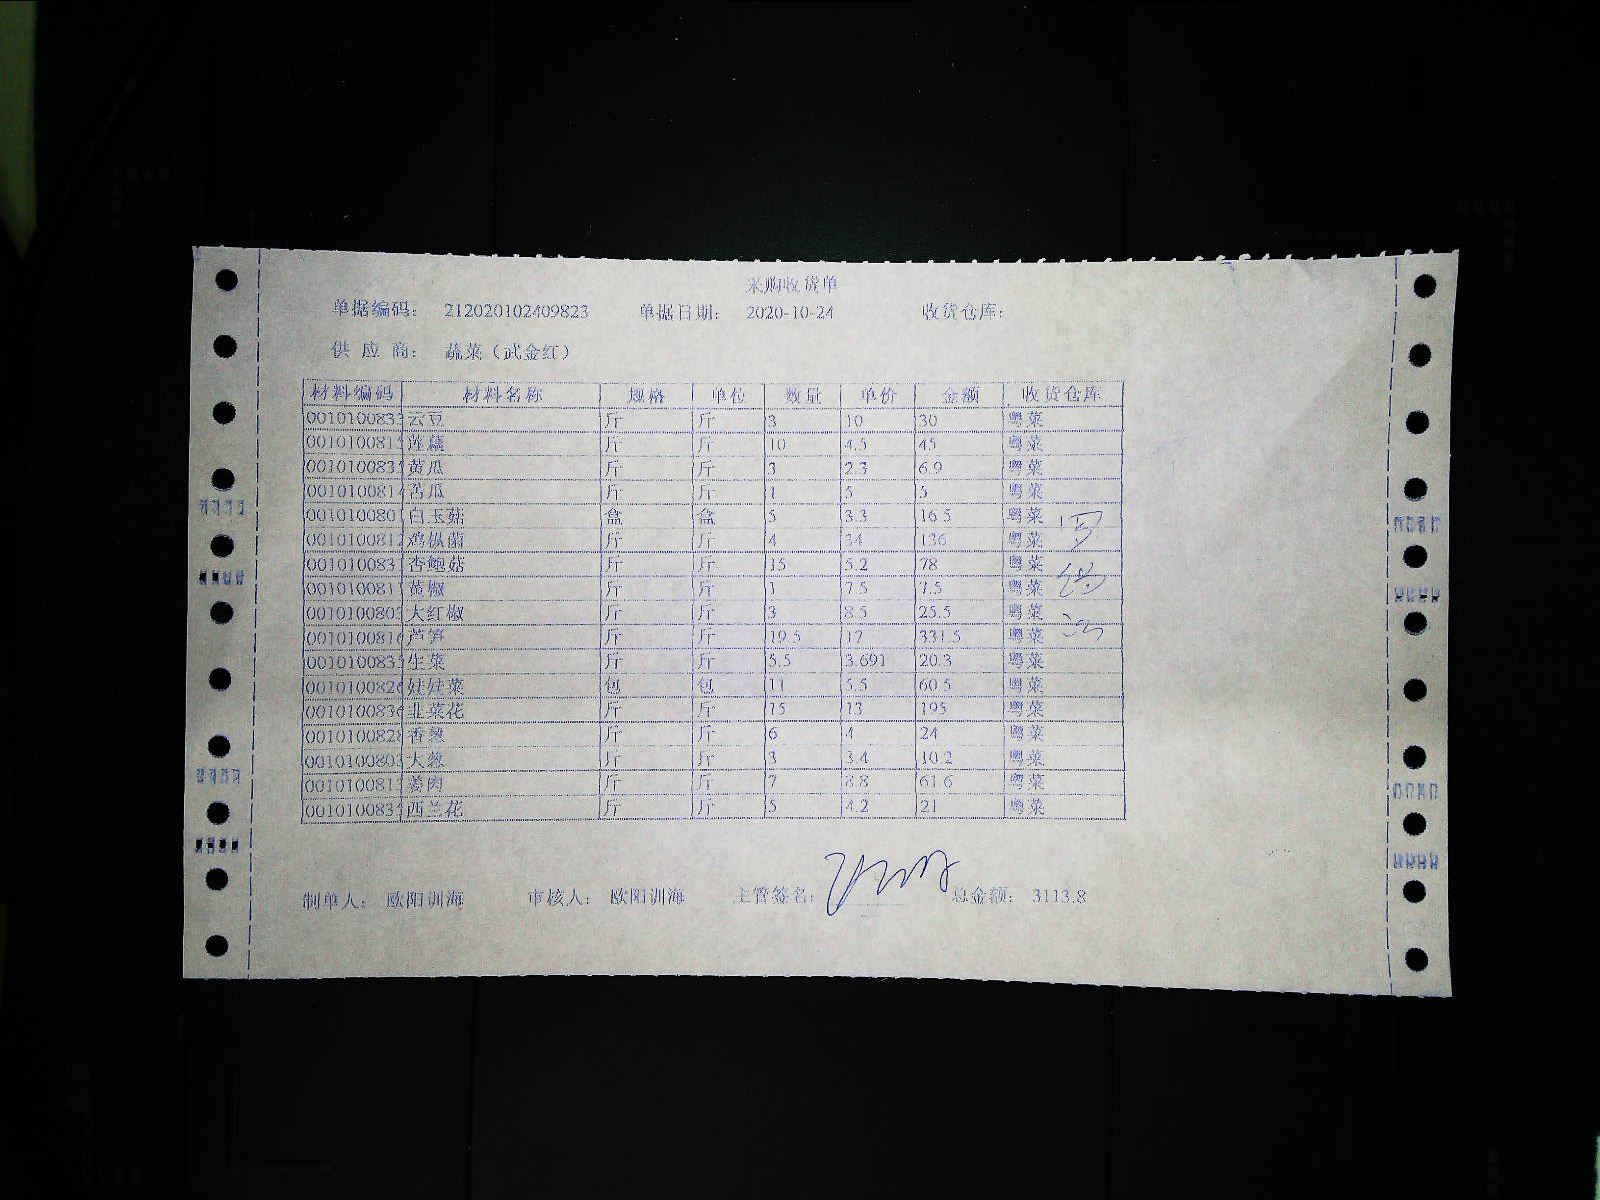 采购收货单
单据编码: 212020102409823 单据日期: 2020-10-24 收货仓库:
供 应 商: 蔬菜（武金红）
材料编码 材料名称 规格 单位 数量 单价 金额 收货仓库
001010083 云豆 斤 斤 3 10 30 粤菜
001010081 斤 斤 10 4.5 45 粤菜
001010083 黄瓜 斤 斤 3 2.3 6.9 粤菜
001010081 斤 斤 1 5 5 粤菜
001010080 白玉菇 盒 盒 5 3.3 16.5 粤菜
001010081 鸡枞菌 斤 斤 4 34 136 粤菜
001010083 杏鲍菇 斤 斤 15 5.2 78 粤菜
001010081 黄椒 斤 斤 1 7.5 7.5 粤菜
001010080 大红椒 斤 斤 3 8.5 25.5 粤菜
001010081 芦笋 斤 斤 19.5 17 331.5 粤菜
001010083 生菜 斤 斤 5.5 3.691 20.3 粤菜
001010082 娃娃菜 包 包 11 5.5 60.5 粤菜
001010083 韭菜花 斤 斤 15 13 195 粤菜
001010082 香葱 斤 斤 6 4 24 粤菜
001010080 大葱 斤 斤 3 3.4 10.2 粤菜
001010081 姜肉 斤 斤 7 8.8 61.6 粤菜
001010083 西兰花 斤 斤 5 4.2 21 粤菜
制单人: 欧阳训海 审核人: 欧阳训海 主管签名: 总金额: 3113.8